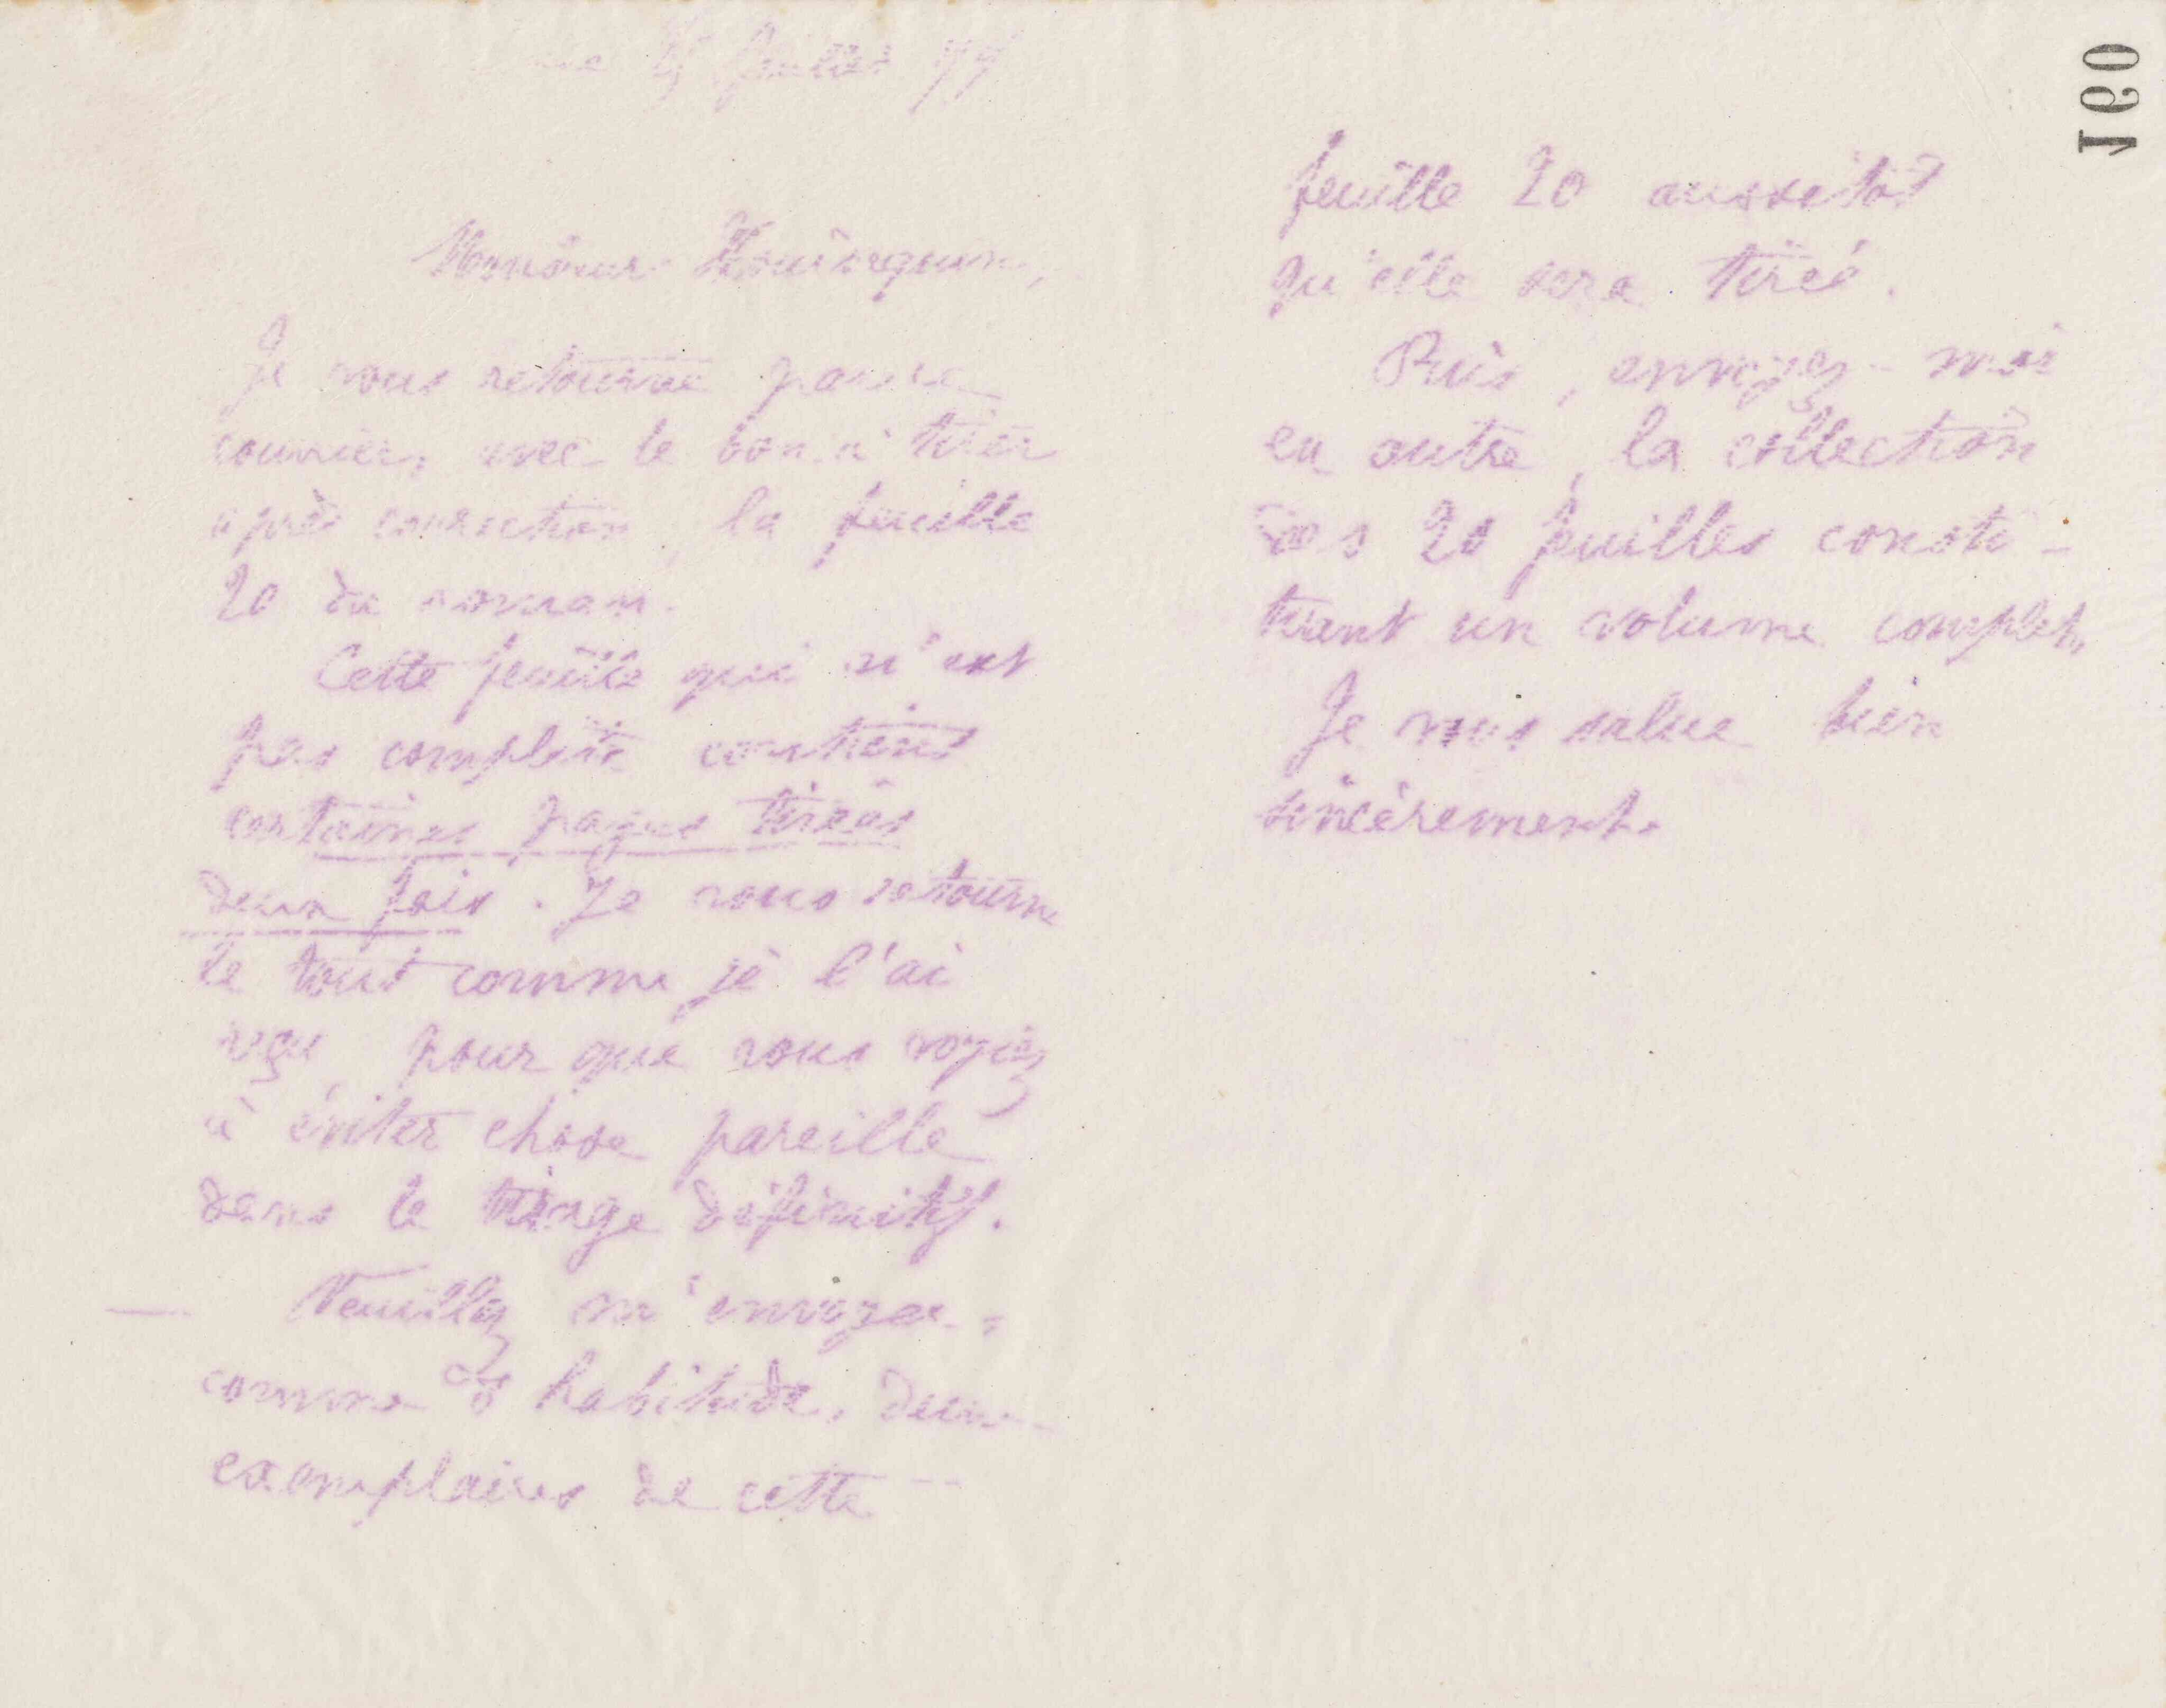 Juillet 77
Monsieur
Je vous retourne par ce
courrier, avec le bon à tirer
après correction, la feuille
20 du roman.
Cette feuille qui n'est
pas complète contient
certaines pages tirées
deux fois. Je vous retourne
le tout comme je l'ai
reçu pour que vous voyiez
à éviter chose pareille
dans le tirage définitif.
— Veuillez m'envoyer,
comme d'habitude, deux
exemplaires de cette
feuille 20 aussitôt
qu'elle sera tirée.
Puis, envoyez-moi
en outre, la collection
des 20 feuilles consti-
tuant un volume complet.
Je vous salue bien
sincèrement.
160